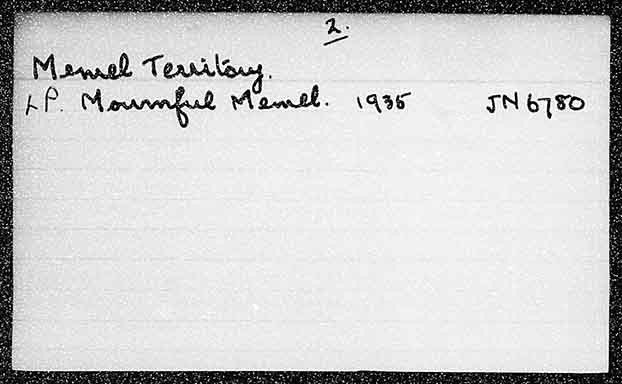 2.
Memel Territory.
LP. Mournful Memel. 1935 JN6780